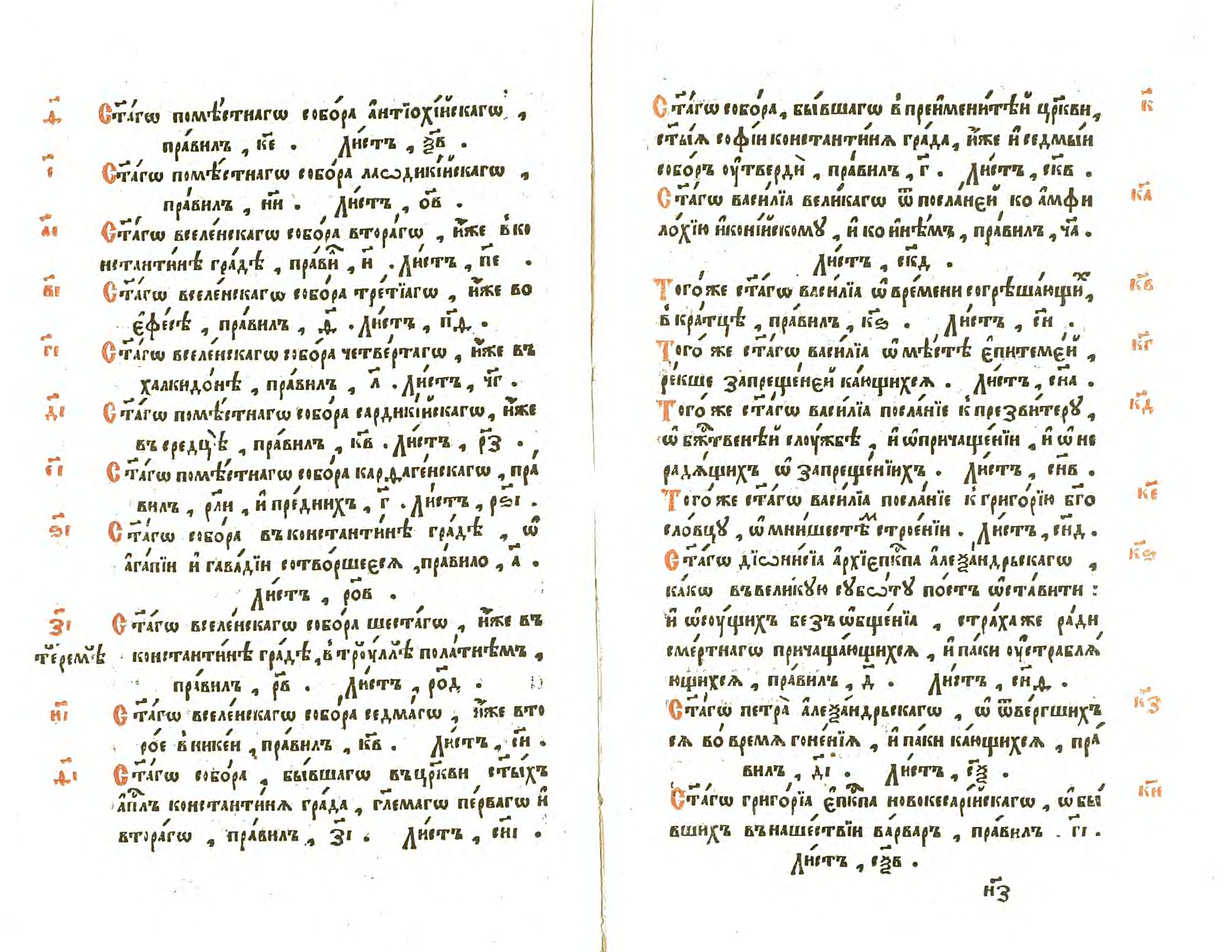 ѳ҃ Ст҃а́гѡ помѣ́стнагѡ собо́ра а҆нтїохі́йскагѡ ,
пра́вилъ , ке҃ . Ли́стъ , ѯ҃в .
і҃ Ст҃а́гѡ помѣ́стнагѡ собо́ра лаѡдикі́йскагѡ ,
пра́вилъ , н҃и . Ли́стъ , о҃в .
а҃і Ст҃а́гѡ вселе́нскагѡ собо́ра втора́гѡ , и҆́же в ко
нстанти́нѣ гра́дѣ , пра́ви , и҃ . Ли́стъ , п҃е .
в҃і Ст҃а́гѡ вселе́нскагѡ собо́ра тре́тїагѡ , и҆́же во
є҆фе́сѣ , пра́вилъ , ѳ҃ . Ли́стъ , п҃ѳ .
г҃і Ст҃а́гѡ вселе́нскагѡ собо́ра четве́ртагѡ , и҆́же въ
халкидо́нѣ , пра́вилъ , л҃ . Ли́стъ , ч҃г .
д҃і Ст҃а́гѡ помѣ́стнагѡ собо́ра сардикі́йскагѡ, и҆́же
въ средцѣ̀ , пра́вилъ , к҃в . Ли́стъ , р҃з .
є҃і Ст҃а́гѡ помѣ́стнагѡ собо́ра карѳаге́нскагѡ , пра́
вилъ , рл҃и , и҆ пре́днихъ , г҃ . Ли́стъ , рѕ҃і .
ѕ҃і Ст҃а́гѡ собо́ра въ константи́нѣ гра́дѣ , ѡ҆
а҆га́пїи и҆ гава́дїи сотво́ршеєся , пра́вило , а҃ .
Ли́стъ , ро҃в .
з҃і Ст҃а́гѡ вселе́нскагѡ собо́ра шеста́гѡ , и҆́же въ
те́ремѣ константи́нѣ гра́дѣ, в тро́уллѣ пола́тнѣмъ ,
пра́вилъ , р҃в . Ли́стъ , ро҃д .
и҃і Ст҃а́гѡ вселе́нскагѡ собо́ра седма́гѡ , и҆́же вто
ро́е в нике́и , пра́вилъ , к҃в . Ли́стъ , с҃и .
ѳ҃і Ст҃а́гѡ собо́ра , бы́вшагѡ въ цр҃кви ст҃ы́хъ
а҆п҃лъ константи́нѧ гра́да , гл҃емагѡ пе́рвагѡ и҆
втора́гѡ , пра́вилъ , з҃і . Ли́стъ , си҃і .
к҃ Ст҃а́гѡ собо́ра , бы́вшагѡ в преимени́тѣй цр҃кви ,
ст҃ы́ѧ софі́и константи́нѧ гра́да , и҆́же и҆ седмы́и
собо́ръ оу҆твердѝ , пра́вилъ , г҃ . Ли́стъ , ск҃в .
к҃а Ст҃а́гѡ васи́лїа вели́кагѡ ѿ посла́нєй ко а҆мфи
ло́хїю и҆коні́йскому , и҆ ко и҆нѣ́мъ , пра́вилъ , ч҃а .
Ли́стъ , ск҃д .
к҃в Того́ же ст҃а́гѡ васи́лїа ѡ҆ вре́мени согрѣша́ющиⷯ ,
в кра́тцѣ , пра́вилъ , к҃ѕ . Ли́стъ , с҃н .
к҃г Того́ же ст҃а́гѡ васи́лїа ѡ҆ мѣ́стѣ є҆питемє́й ,
ре́кше запреще́нєй ка́ющихсѧ . Ли́стъ , сн҃а .
к҃д Того́ же ст҃а́гѡ васи́лїа посла́нїе к презви́теру ,
ѡ҆ бж҃твенѣй слоу́жбѣ , и҆ ѡ҆ причаще́нїи , и҆ ѡ҆ не
радѧ́щихъ ѡ҆ запреще́нїихъ . Ли́стъ , сн҃в .
к҃є Того́ же ст҃а́гѡ васи́лїа посла́нїе к григо́рїю бг҃о
сло́вцу , ѡ҆ мни́шестѣⷨ строе́нїи . Ли́стъ , сн҃д .
к҃ѕ Ст҃а́гѡ дїѡни́сїа а҆рхїеп҃кпа а҆леѯа́ндрьскагѡ ,
ка́кѡ въ вели́кую субѡ́ту по́стъ ѡ҆ста́вити :
и҆ ѡ҆ соу́щихъ без ѡ҆бще́нїа , стра́ха же ра́ди
сме́ртнагѡ причаща́ющихсѧ , и҆ па́ки оу҆страблѧ́
ющихсѧ , пра́вилъ , д҃ . Ли́стъ , сн҃ѳ .
к҃з Ст҃а́гѡ петра̀ а҆леѯа́ндрьскагѡ , ѡ҆ ѿве́ргшихъ
сѧ во вре́мѧ гоне́нїѧ , и҆ па́ки ка́ющихсѧ , пра́
вилъ , д҃і . Ли́стъ , с҃ѯ .
к҃и Ст҃а́гѡ григо́рїа є҆п҃кпа новокесарі́йскагѡ , ѡ҆ бы́
вшихъ въ наше́ствїи ва́рваръ , пра́вилъ . г҃і .
Ли́стъ , сѯ҃в .
н҃з